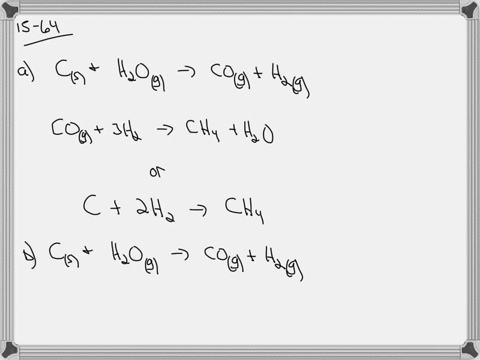 15-64
a) C(s) + H₂O(g) → CO(g) + H₂(g)
CO(g) + 3H₂ → CH₄ + H₂O
or
C + 2H₂ → CH₄
b) C(s) + H₂O(g) → CO(g) + H₂(g)